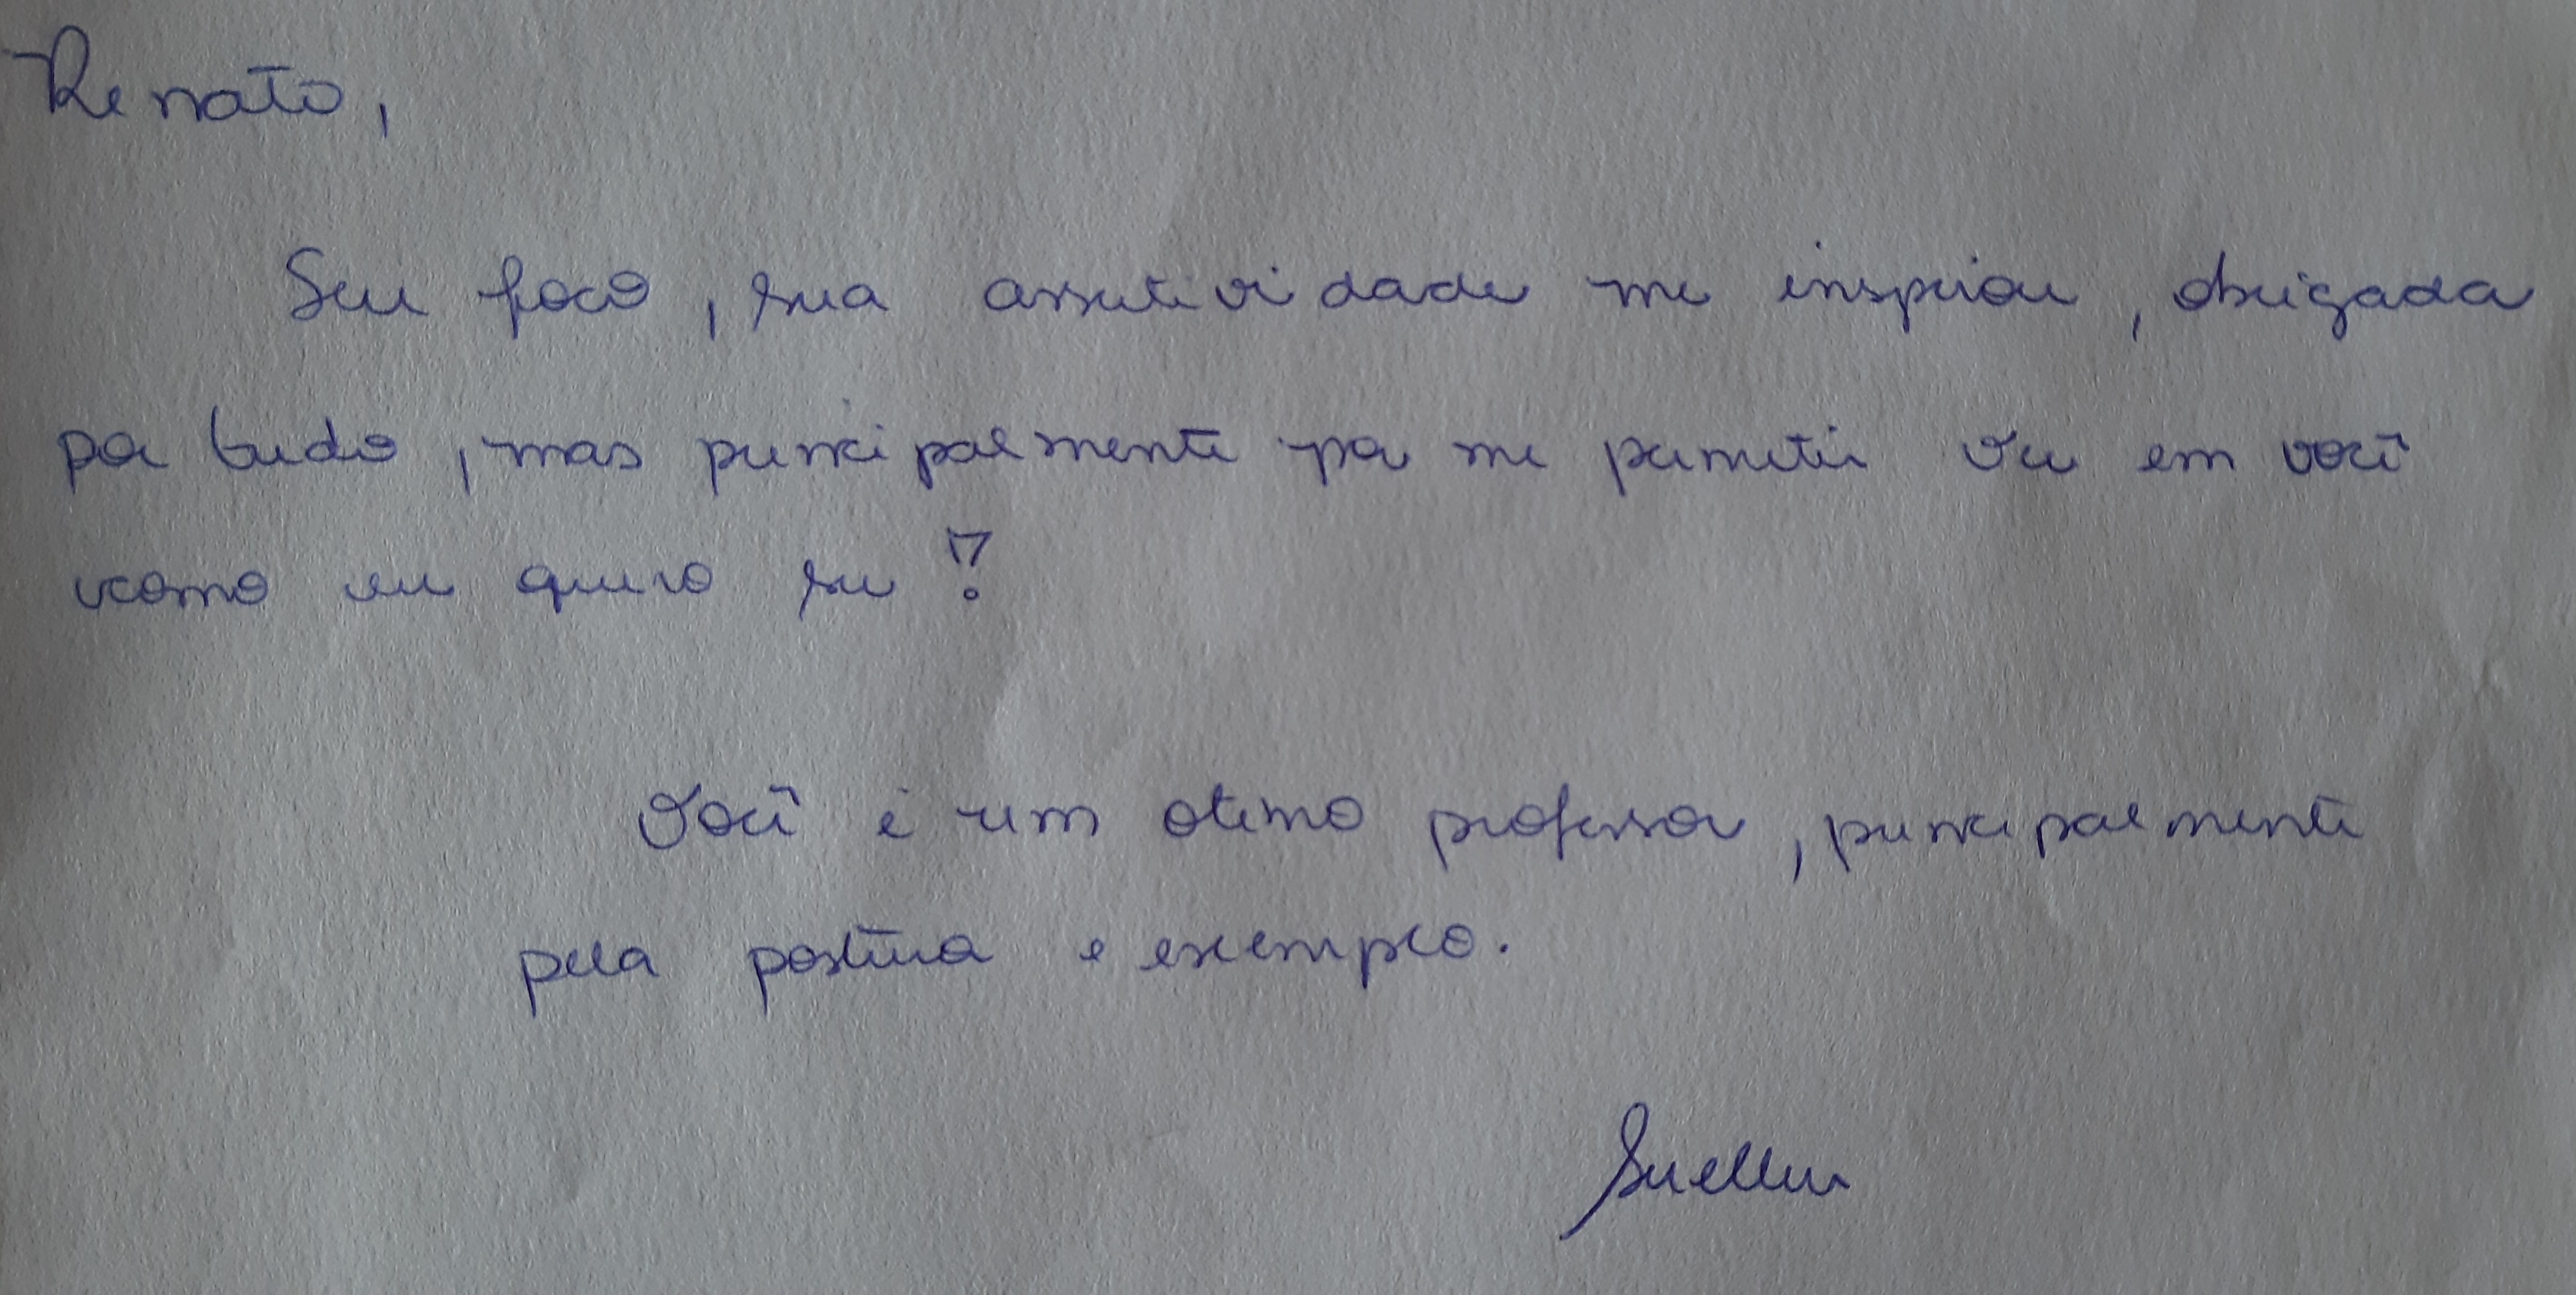 Renato,
Seu foco, sua assertividade me inspirou, obrigada
por tudo, mas principalmente por me permitir ver em você
como eu quero ser!
Você é um otimo professor, principalmente
pela postura e exemplo.
Suellen